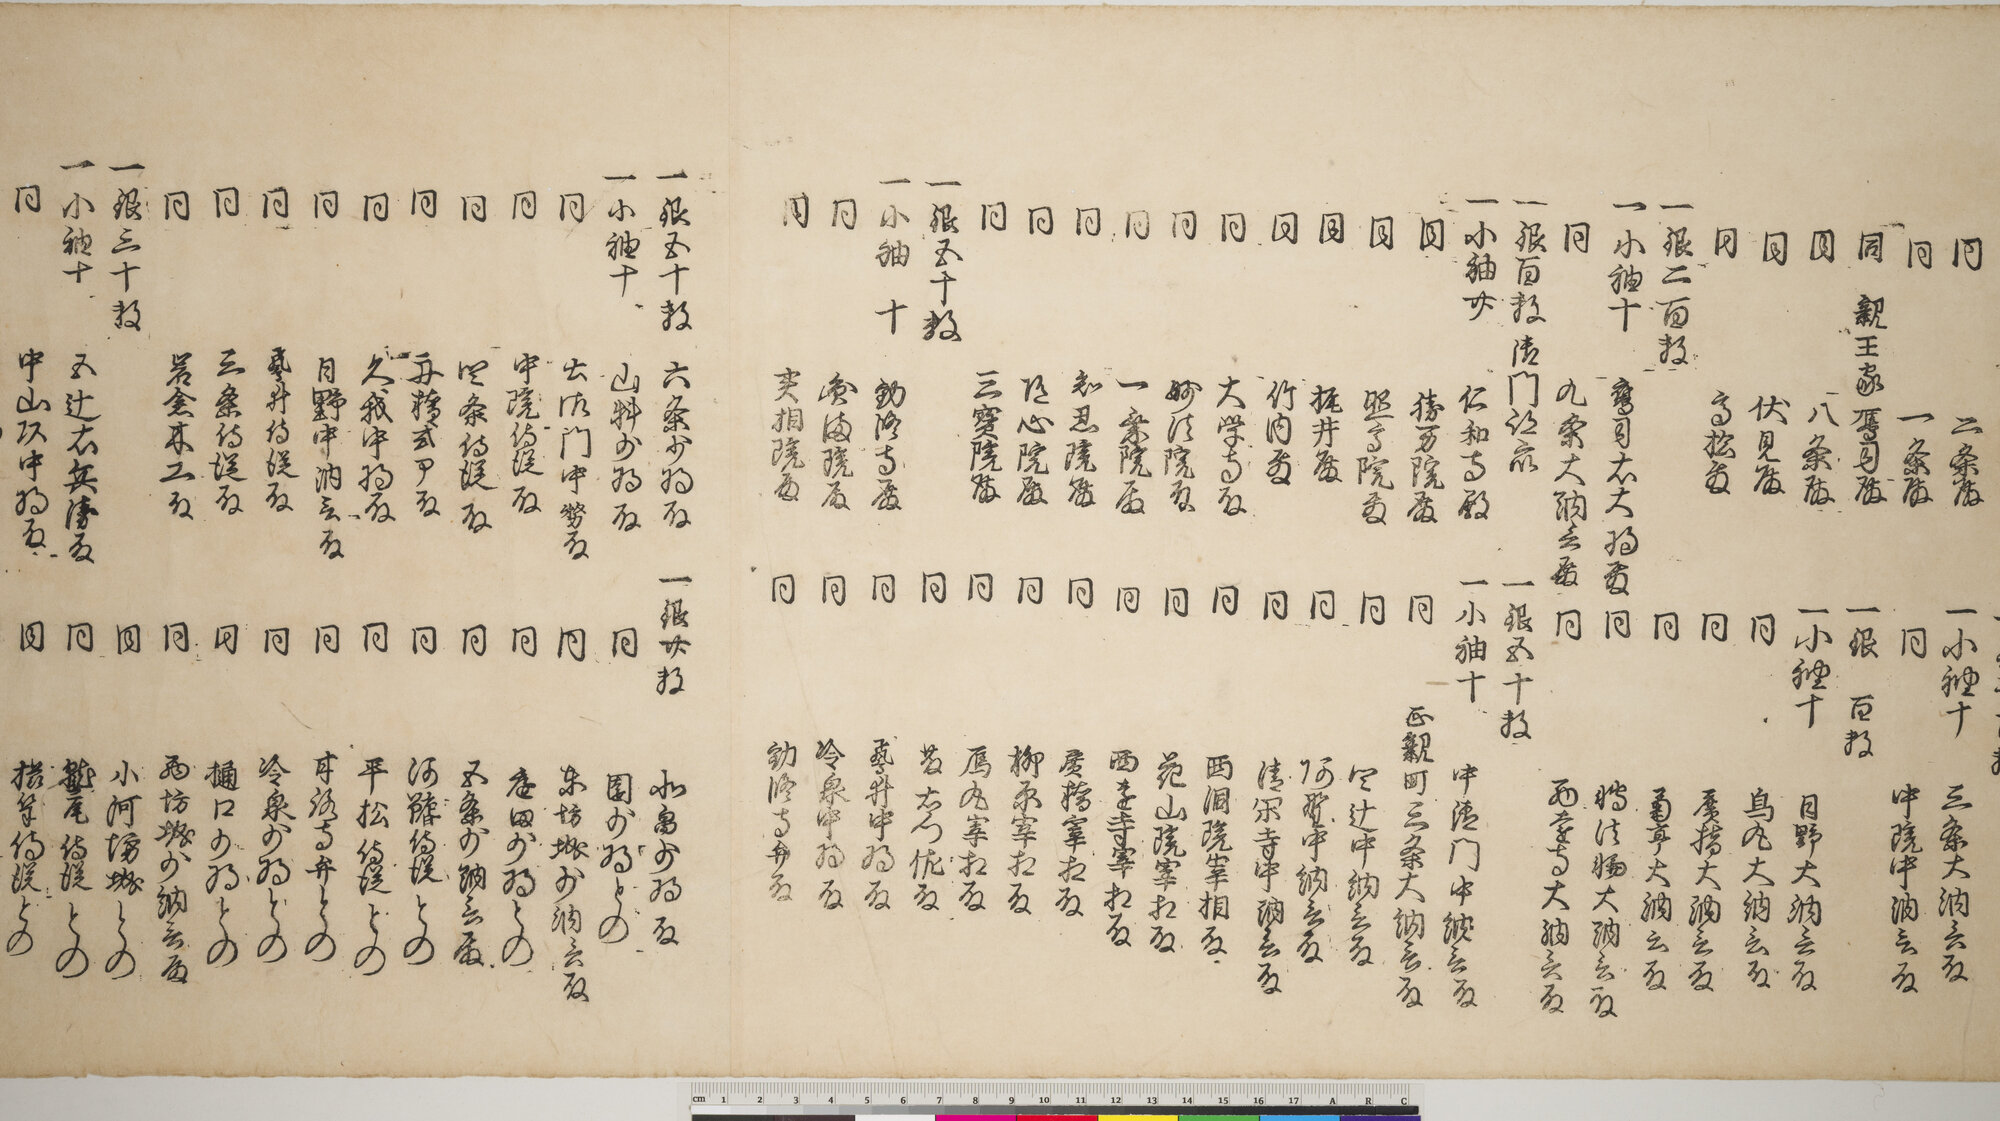 同 二条殿
同 一条殿
同 親王家 鷹司殿
同 八条殿
同 伏見殿
同 高松殿
一銀二百枚
一小袖十 鷹司右大将殿
同 九条大納言殿
一銀百枚 御門跡衆
一小袖廿 仁和寺殿
同 勝万院殿
同 照高院殿
同 梶井殿
同 竹内殿
同 大学寺殿
同 妙法院殿
同 一乗院殿
同 知恩院殿
同 随心院殿
同 三宝院殿
一銀五十枚
一小袖 十 勧修寺殿
同
同 実相院殿
一小袖十 三条大納言殿
同 中院中納言殿
一銀 百枚
一小袖十 日野大納言殿
同 烏丸大納言殿
同 広橋大納言殿
同 菊亭大納言殿
同 大納言殿
同 西園寺大納言殿
一銀五十枚
一小袖十 中御門中納言殿
同 正親町三条大納言殿
同 四辻中納言殿
同 阿野中納言殿
同 清閑寺中納言殿
同 西洞院宰相殿
同 花山院宰相殿
同 西園寺宰相殿
同 広橋宰相殿
同 柳原宰相殿
同 烏丸宰相殿
同
同 藤井中将殿
同 冷泉中将殿
同 勧修寺弁殿
一銀五十枚 六条少将殿
一小袖十 山科少将殿
同 大炊御門中納言殿
同 中院侍従殿
同 四条侍従殿
同 舟橋式ア殿
同 久我中将殿
同 日野中納言殿
同 藤井侍従殿
同 三条侍従殿
同 岩倉木工殿
一銀三十枚
一小袖十 五辻右兵衛殿
同 中山頭中将殿
一銀廿枚 水無少将殿
同 園少将との
同 東坊城少納言殿
同 庭田少将との
同 五条少納言殿
同 河鰭侍従との
同 平松侍従との
同 甘露寺弁との
同 冷泉少将との
同 樋口少将との
同 西坊城少納言殿
同 小河坊城との
同 鷲尾侍従との
同 侍従との